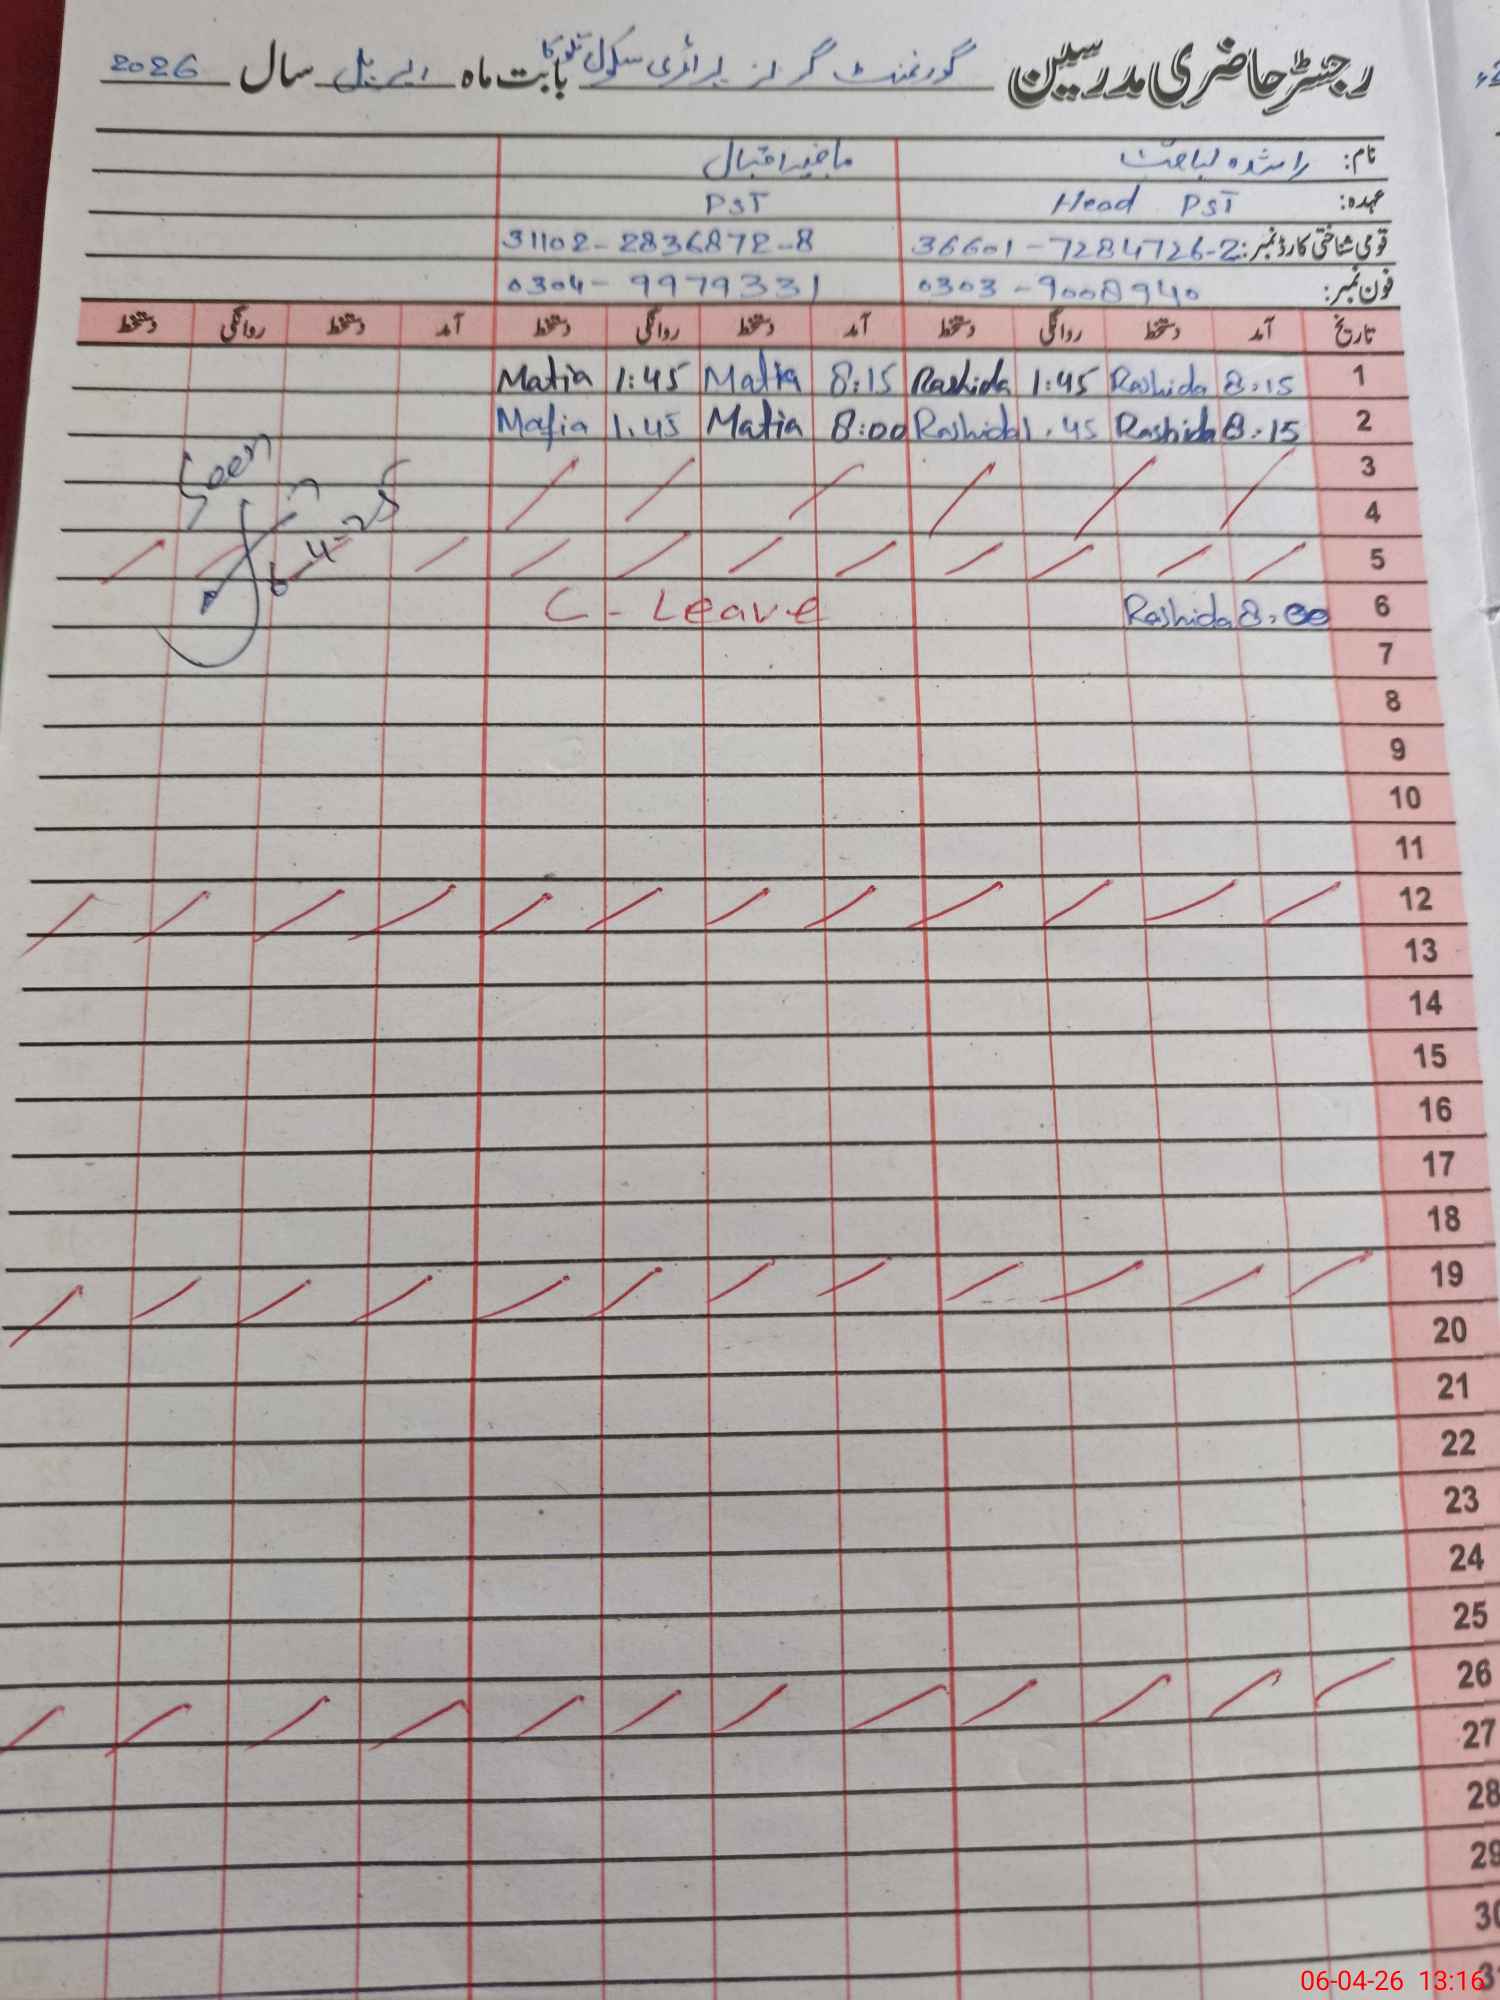 رجسٹر حاضری مدرسین گورنمنٹ گرلز پرائمری سکول بابت ماہ اپریل سال 2026
نام: راشدہ اقبال
عہدہ: Head PST PST
قومی شناختی کارڈ نمبر: 36601-7284726-2 31102-2836872-8
فون نمبر: 0303-9008940 0304-9979331
تاریخ آمد دستخط روانگی دستخط آمد دستخط روانگی دستخط آمد دستخط روانگی دستخط
1 8:15 Rashida 1:45 Rashida 8:15 Mafia 1:45 Mafia
2 8:15 Rashida 1.45 Rashida 8:00 Mafia 1.45 Mafia
3
Seen
4
6-4-25
5
6 8:00 Rashida C-Leave
7
8
9
10
11
12
13
14
15
16
17
18
19
20
21
22
23
24
25
26
27
28
29
30
06-04-26 13:16